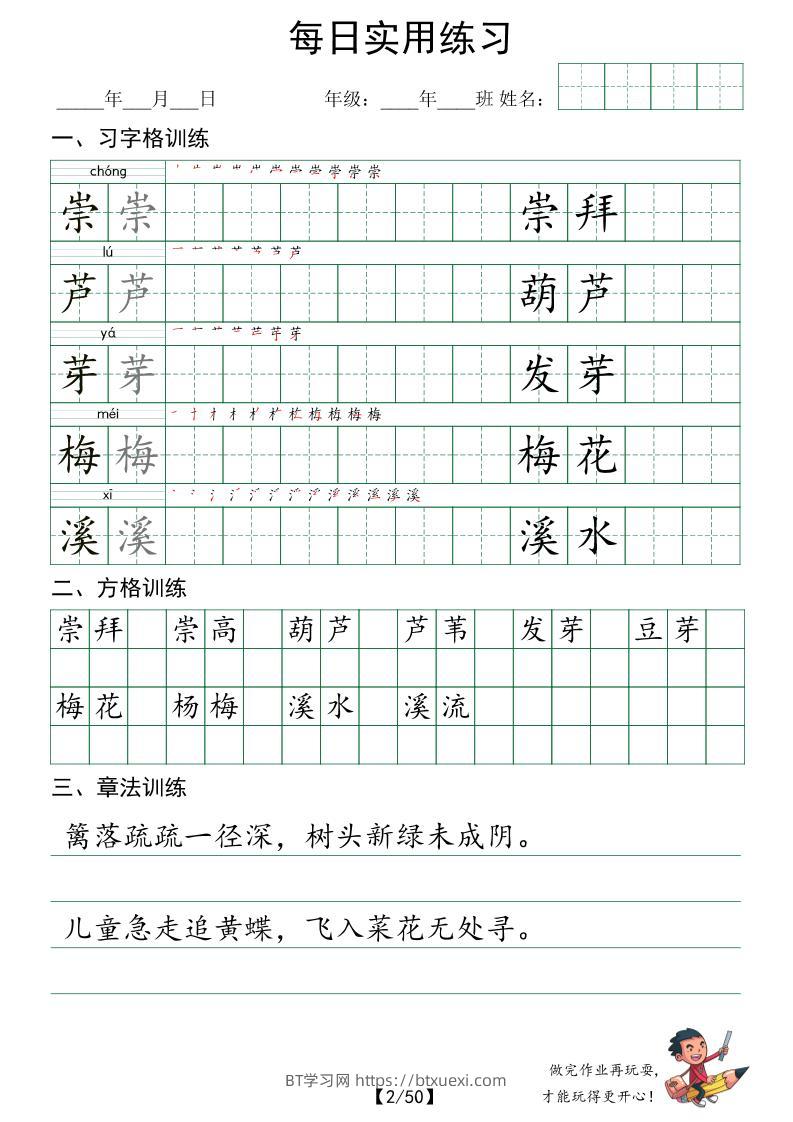 每日实用练习
_____年___月___日 年级：____年____班 姓名：
一、习字格训练
chóng
崇 崇 崇 拜
lú
芦 芦 葫 芦
yá
芽 芽 发 芽
méi
梅 梅 梅 花
xī
溪 溪 溪 水
二、方格训练
崇 拜 崇 高 葫 芦 芦 苇 发 芽 豆 芽
梅 花 杨 梅 溪 水 溪 流
三、章法训练
篱落疏疏一径深，树头新绿未成阴。
儿童急走追黄蝶，飞入菜花无处寻。
做完作业再玩耍，
才能玩得更开心！
BT学习网 https://btxuexi.com
【2/50】